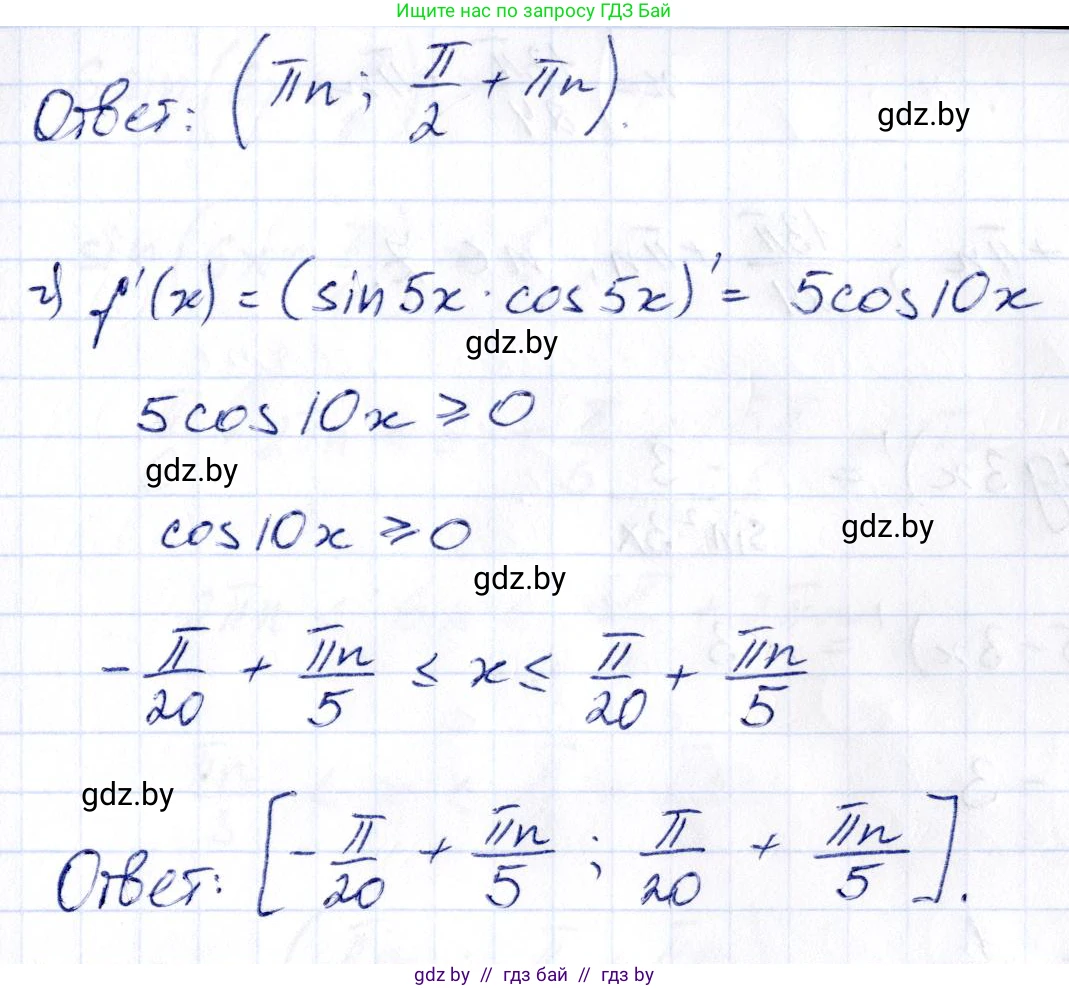 Ищите нас по запросу ГДЗ Бай
Ответ: (πn; π/2 + πn).
gdz.by
г) f'(x) = (sin 5x · cos 5x)' = 5cos 10x
gdz.by
5cos 10x ≥ 0
gdz.by
cos 10x ≥ 0
gdz.by
gdz.by
-π/20 + πn/5 ≤ x ≤ π/20 + πn/5
gdz.by
Ответ: [-π/20 + πn/5 ; π/20 + πn/5].
gdz by // гдз бай // гдз by